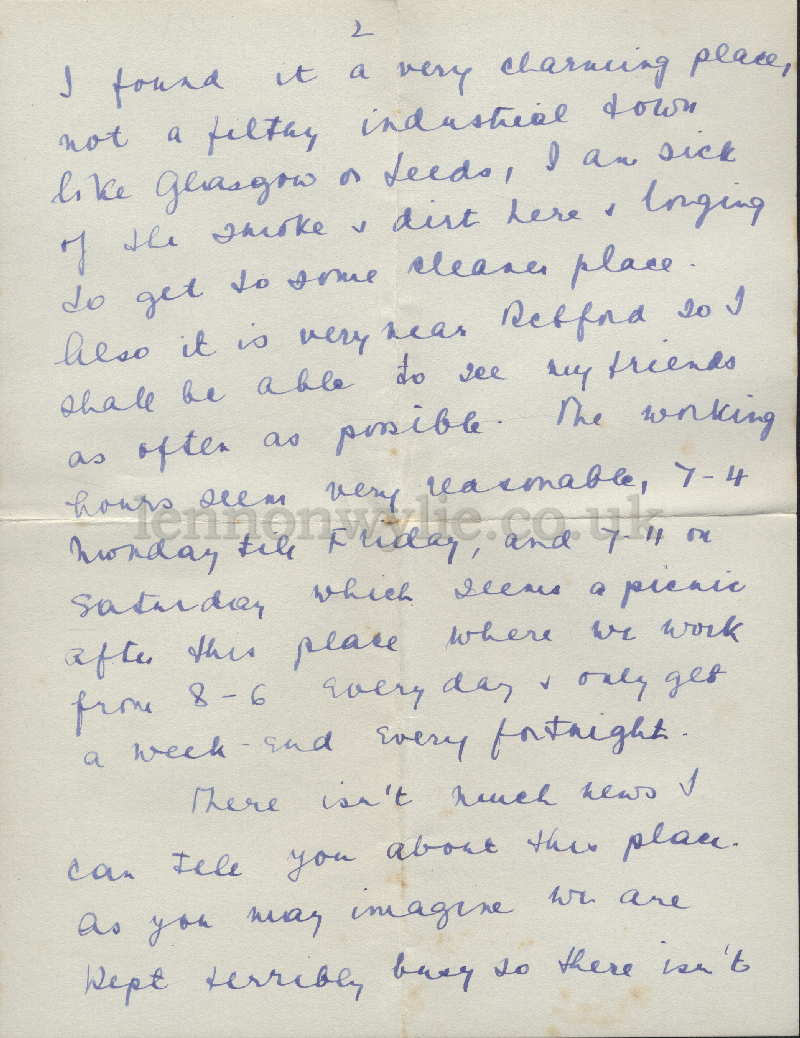 2
I found it a very charming place,
not a filthy industrial town
like Glasgow or Leeds, I am sick
of the smoke & dirt here & longing
to get to some cleaner place.
Also it is very near Retford so I
shall be able to see my friends
as often as possible. The working
hours seem very reasonable, 7-4
lennonwylie.co.uk
Monday till Friday, and 7-11 on
Saturday which seems a picnic
after this place where we work
from 8-6 every day & only get
a week-end every fortnight.
There isn't much news I
can tell you about this place.
As you may imagine we are
kept terribly busy so there isn't